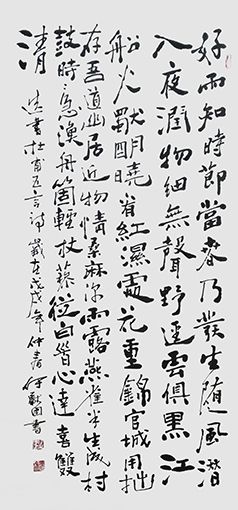 好雨知時節當春乃發生随風潜
入夜潤物細無聲野逕雲俱黑江
船火獨明曉看紅濕處花重錦官城用拙
存吾道幽居近物情桑麻深雨露燕雀半生成村
鼓時〻急漁舟箇〻輕杖藜從白首心迹喜雙
清
選書杜甫五言詩歲在戊戌年仲春 書